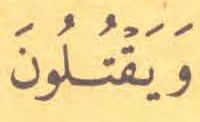 وَيَقْتُلُونَ